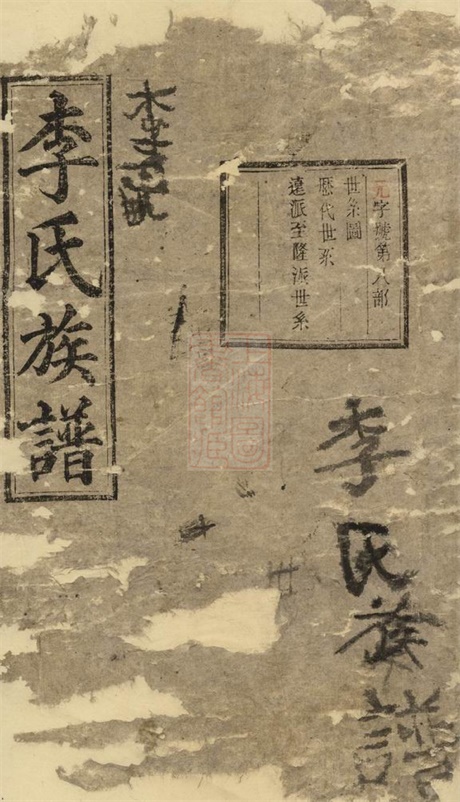 九字號第八部
世系圖
歷代世系
遠派至隆派世系
李氏族譜
李氏族譜